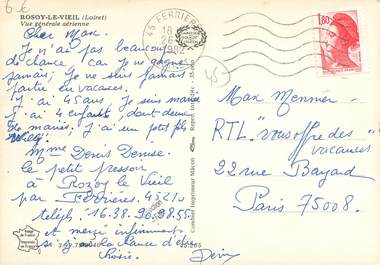 6 €
ROSOY-LE-VIEIL (Loiret)
Vue générale aérienne
Cher Max.
Je n'ai pas beaucoup
de chance, car je ne gagne
jamais, Je ne suis jamais
partie en vacances.
J'ai 45 ans, Je suis mariée
j'ai 4 enfants, dont deux
de mariés, J'ai un petit fils
Mme Denis Denise
le petit pressoir
à Rozoy le Vieil
par Ferrières 45210
téléph. 16.38.90.98.55
et merci infiniment
si j'ai la chance d'être
choisie.
45 FERRIERES
18
1,80
45
Max Meynier
RTL "vous offre des
vacances
22 rue Bayard
Paris 75008.
Combier Imprimeur Mâcon